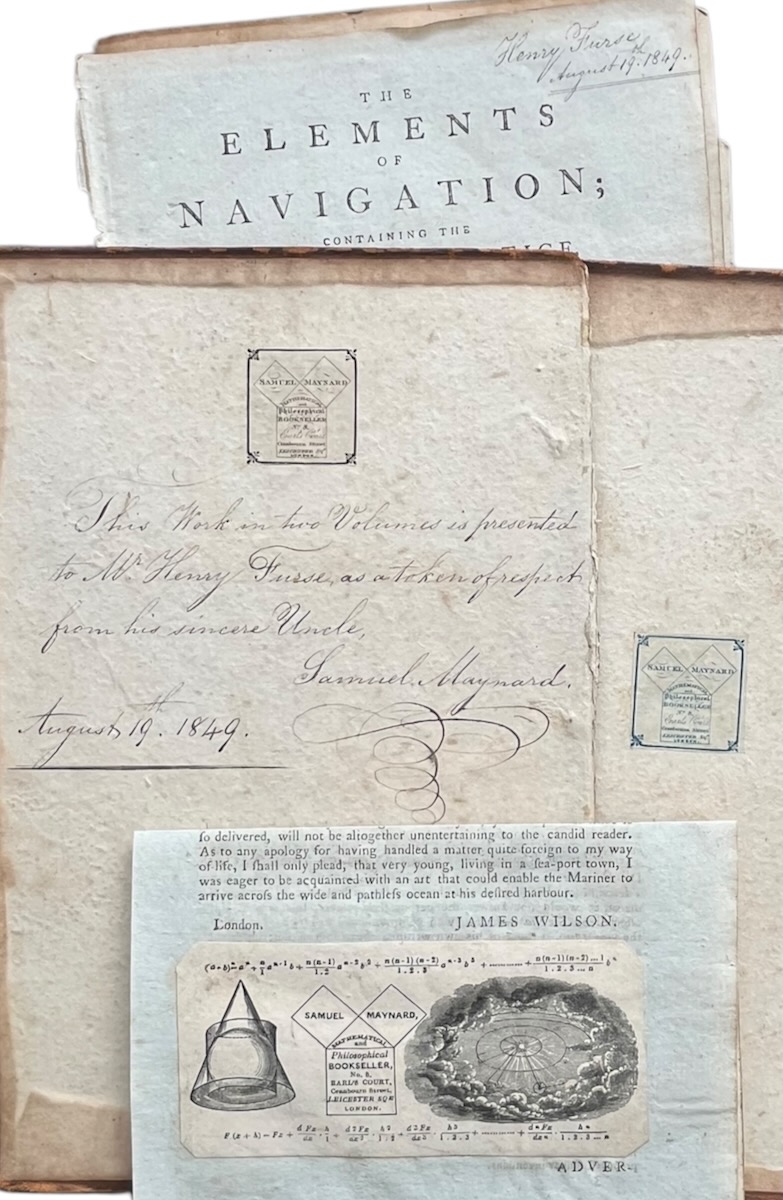 Henry Furse
August 19th. 1849.
THE
ELEMENTS
OF
NAVIGATION;
CONTAINING THE
SAMUEL MAYNARD
MATHEMATICAL
and
Philosophical
BOOKSELLER
No. 8,
Earl's Court
Cranbourn Street
LEICESTER SQe
LONDON.
This Work in two Volumes is presented
to Mr. Henry Furse, as a token of respect
from his sincere Uncle,
Samuel Maynard.
August 19th. 1849.
SAMUEL MAYNARD
MATHEMATICAL
and
Philosophical
BOOKSELLER
No. 8,
Earl's Court
Cranbourn Street
LEICESTER SQe
LONDON.
ſo delivered, will not be altogether unentertaining to the candid reader.
As to any apology for having handled a matter quite foreign to my way
of life, I ſhall only plead, that very young, living in a ſea-port town, I
was eager to be acquainted with an art that could enable the Mariner to
arrive acroſs the wide and pathleſs ocean at his deſired harbour.
London. JAMES WILSON.
(a+b)ⁿ=aⁿ+n/1 aⁿ⁻¹b+n(n-1)/1.2 aⁿ⁻²b²+n(n-1)(n-2)/1.2.3 aⁿ⁻³b³+............+n(n-1)(n-2)...1/1.2.3...n bⁿ
SAMUEL MAYNARD,
MATHEMATICAL
and
Philosophical
BOOKSELLER,
No. 8,
EARL'S COURT,
Cranbourn Street,
LEICESTER SQE
LONDON.
F(x+h)=Fx+dFx/dx·h/1+d²Fx/dx²·h²/1.2+d³Fx/dx³·h³/1.2.3+............+dⁿFx/dxⁿ·hⁿ/1.2.3...n
ADVER-